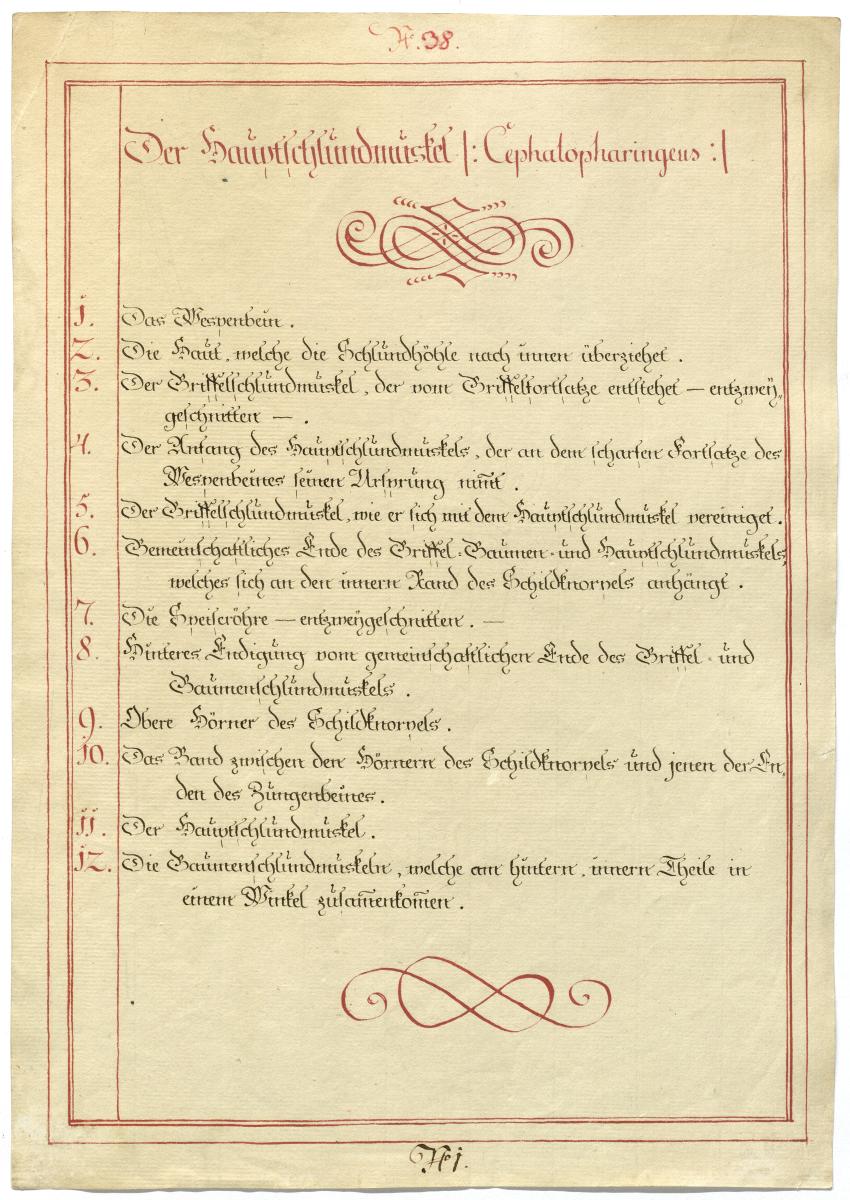 Nº. 38.
Der Hauptschlundmuskel /: Cephalopharingeus :/
1. Das Wespenbein.
2. Die Haut, welche die Schlundhöhle nach innen überziehet.
3. Der Griffelschlundmuskel, der vom Griffelfortsatze entstehet — entzwey„
geschnitten —.
4. Der Anfang des Hauptschlundmuskels, der an dem scharfen Fortsatze des
Wespenbeines seinen Ursprung nim̅t.
5. Der Griffelschlundmuskel, wie er sich mit dem Hauptschlundmuskel vereiniget.
6. Gemeinschaftliches Ende des Griffel- Gaumen- und Hauptschlundmuskels,
welches sich an den innern Rand des Schildknorpels anhängt.
7. Die Speiseröhre — entzweygeschnitten. —
8. Hinteres Endigung vom gemeinschaftlichen Ende des Griffel- und
Gaumenschlundmuskels.
9. Obere Hörner des Schildknorpels.
10. Das Band zwischen den Hörnern des Schildknorpels und jenen der En„
den des Zungenbeines.
11. Der Hauptschlundmuskel.
12. Die Gaumenschlundmuskeln, welche am hintern, innern Theile in
einem Winkel zusam̅enkom̅en.
Nº 1.